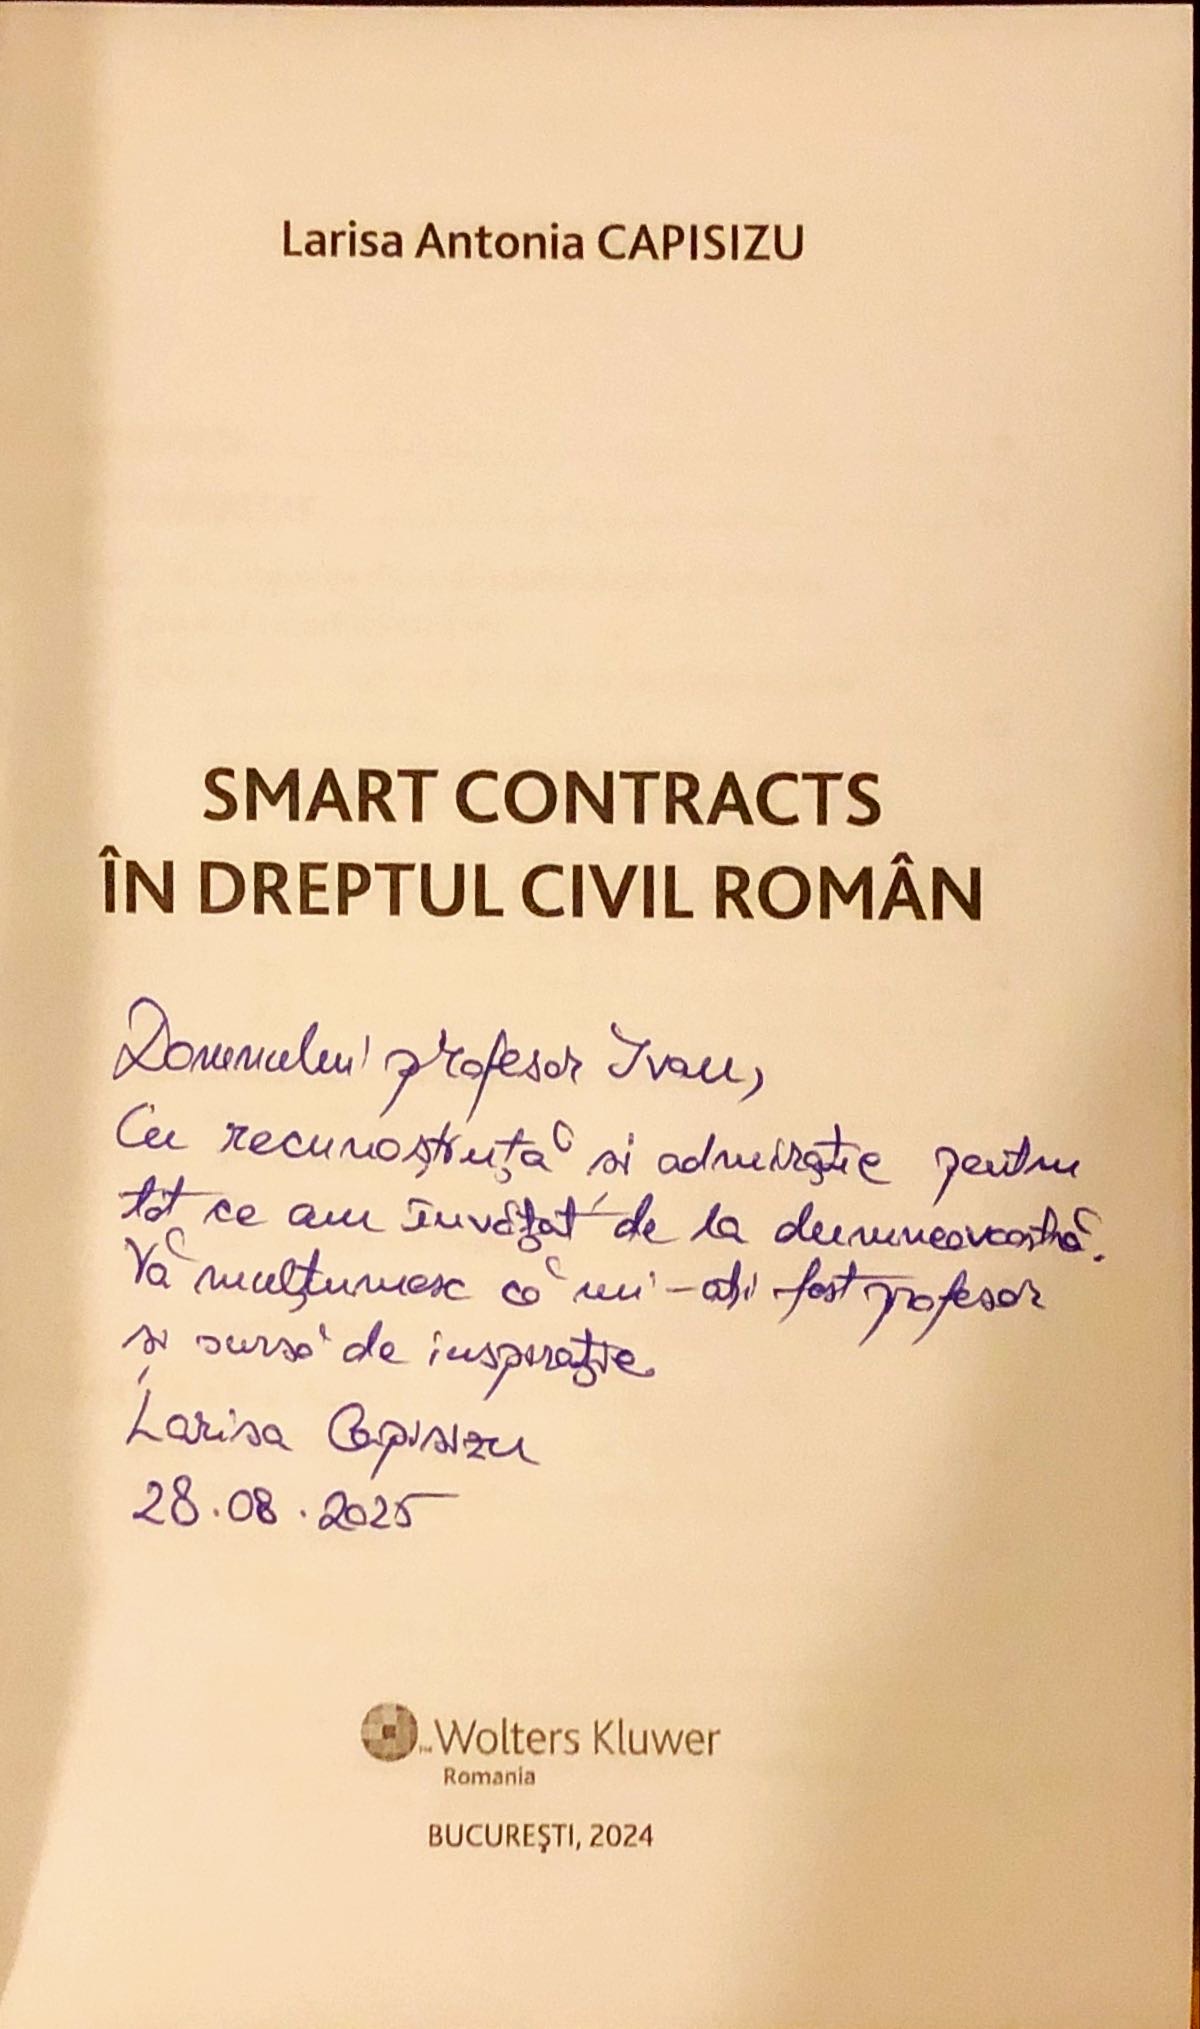 Larisa Antonia CAPISIZU
SMART CONTRACTS
ÎN DREPTUL CIVIL ROMÂN
Domnului profesor Ivan,
Cu recunoștință și admirație pentru
tot ce am învățat de la dumneavoastră.
Vă mulțumesc că mi-ați fost profesor
și sursă de inspirație.
Larisa Capisizu
28.08.2025
Wolters Kluwer
Romania
BUCUREŞTI, 2024